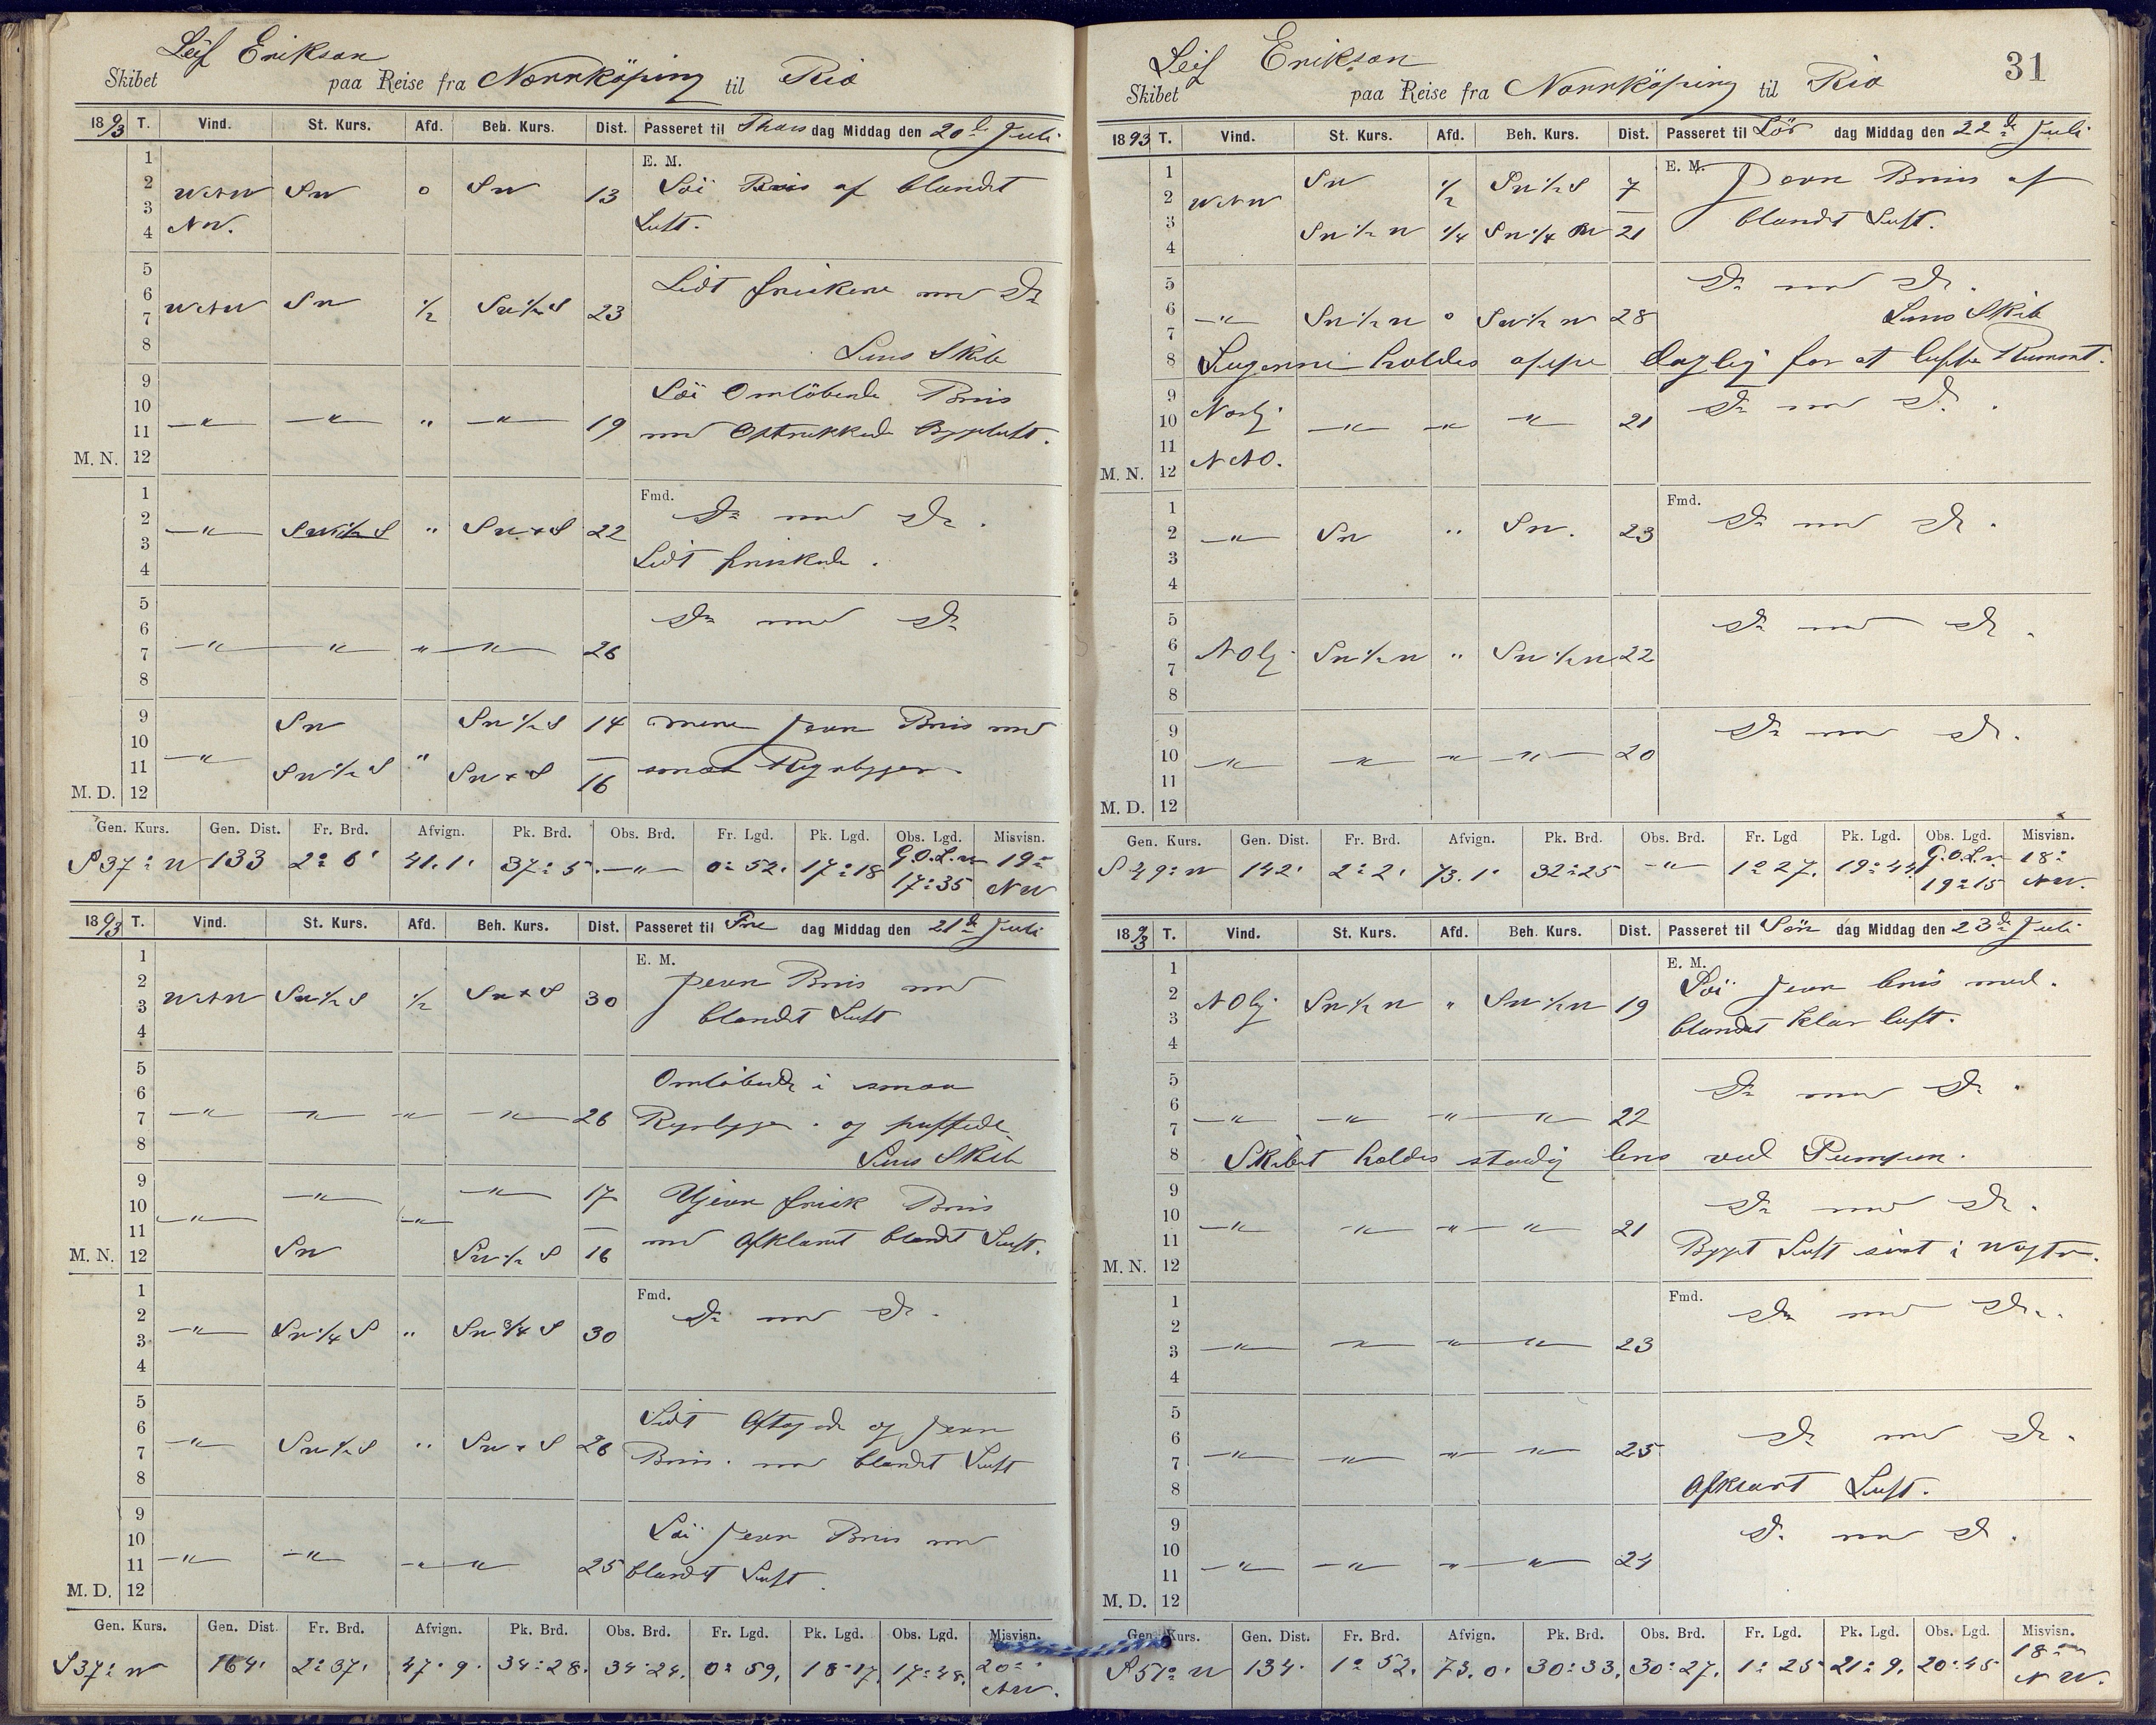 Leif Erikson
Skibet paa Reise fra Norrköping til Rio
1893 T. Vind. St. Kurs. Afd. Beh. Kurs. Dist. Passeret til Thors dag Middag den 20de Juli
1 E. M.
2 WNW SW o SW 13 Löi Bris af blandet
3 NW. Luft.
4
5
6 WNW SW 1/2 SW 1/2 S 23 Lidt friskere med Do
7
8 Lens Skib
9 Löi Omlöbende Bris
10 —"— —"— " —"— 19
11 med Optrukkede Bygeluft.
M. N. 12
1 Fmd.
2 —"— SW 1/2 S " SW x S 22 Do med Do.
3 Lidt friskede.
4
5 Do med Do
6 —"— —"— " —"— 26
7
8
9 SW SW 1/2 S 14 mere jevn Bris med
10 —"— "
11 SW 1/2 S SW x S 16 smaa Regnbyger.
M. D. 12
Gen. Kurs. Gen. Dist. Fr. Brd. Afvign. Pk. Brd. Obs. Brd. Fr. Lgd. Pk. Lgd. Obs. Lgd. Misvisn.
S 37° W 133 2° 6' 41.1' 37° 5' —"— 0° 52' 17° 18 G.O.L.n 17° 35 19° NW
1893 T. Vind. St. Kurs. Afd. Beh. Kurs. Dist. Passeret til Fre dag Middag den 21de Juli
1 E. M.
2 WNW SW 1/2 S 1/2 SW x S 30 Jevn Bris med
3 blandet Luft
4
5 Omlöbende i smaa
6
7 —"— —"— —"— —"— 26 Regnbyger. og puffede
8 Lens Skib
9 —"— —"— 17 Ujevn frisk Bris
10 —"— —"—
11 med Afklaret blandet Luft.
M. N. 12 SW SW 1/2 S 16
1 Fmd.
2 —"— SW 1/4 S " SW 3/4 S 30 Do med Do.
3
4
5 Lidt Aftagende og jevn
6 —"— SW 1/2 S " SW x S 26
7 Bris. med blandet Luft
8
9 Löi jevn Bris med
10
11 —"— —"— —"— —"— 25 blandet Luft.
M. D. 12
Gen. Kurs. Gen. Dist. Fr. Brd. Afvign. Pk. Brd. Obs. Brd. Fr. Lgd. Pk. Lgd. Obs. Lgd. Misvisn.
S 37° W 164' 2° 37' 47.9' 34° 28' 34° 24' 0° 59' 18° 17' 17° 48' 20° NW.
Leif Erikson 31
Skibet paa Reise fra Norrköping til Rio
1893 T. Vind. St. Kurs. Afd. Beh. Kurs. Dist. Passeret til Lör dag Middag den 22de Juli
1 E. M.
2 WNW SW 1/2 SW 1/2 S 7 Jevn Bris af
3 SW 1/2 W 1/4 SW 1/4 W 21 blandet Luft.
4
5 Do med Do.
6 —"— SW 1/2 W o SW 1/2 W 28 Lens Skib
7
8 Lugerne holdes oppe daglig for at lufte Rummet.
9 Nordlj. Do med Do.
10 —"— —"— —"— 21
11
M. N. 12 NNO.
1 Fmd.
2 —"— SW " SW. 23 Do med Do.
3
4
5 Do med Do.
6 NOlj. SW 1/2 W " SW 1/2 W 22
7
8
9 Do med Do.
10 —"— —"— —"— —"— 20
11
M. D. 12
Gen. Kurs. Gen. Dist. Fr. Brd. Afvign. Pk. Brd. Obs. Brd. Fr. Lgd Pk. Lgd. Obs. Lgd. Misvisn.
S 49° W 142' 2° 2' 73.1' 32° 25 —"— 1° 27' 19° 44 G.O.L.n. 19° 15 18° NW.
1893 T. Vind. St. Kurs. Afd. Beh. Kurs. Dist. Passeret til Sön dag Middag den 23de Juli
1 E. M.
2 NOlj SW 1/2 W " SW 1/2 W 19 Löi jevn bris med.
3 blandet klar luft.
4
5 Do med Do.
6
7 —"— —"— —"— —"— 22
8 Skibet holdes stadig lens ved Pumpen.
9 Do med Do.
10 —"— —"— —"— —"— 21
11 Bygst Luft sidst i Wagten.
M. N. 12
1 Fmd.
2 Do med Do.
3 —"— —"— —"— —"— 23
4
5
6 Do med Do.
7 —"— —"— —"— —"— 25
8 Afklaret Luft.
9 Do med Do.
10
11 —"— —"— —"— —"— 24
M. D. 12
Gen. Kurs. Gen. Dist. Fr. Brd. Afvign. Pk. Brd. Obs. Brd. Fr. Lgd. Pk. Lgd. Obs. Lgd. Misvisn.
S 51° W 134' 1° 52' 73.0' 30° 33' 30° 27' 1° 25 21° 9' 20° 45 18° NW.